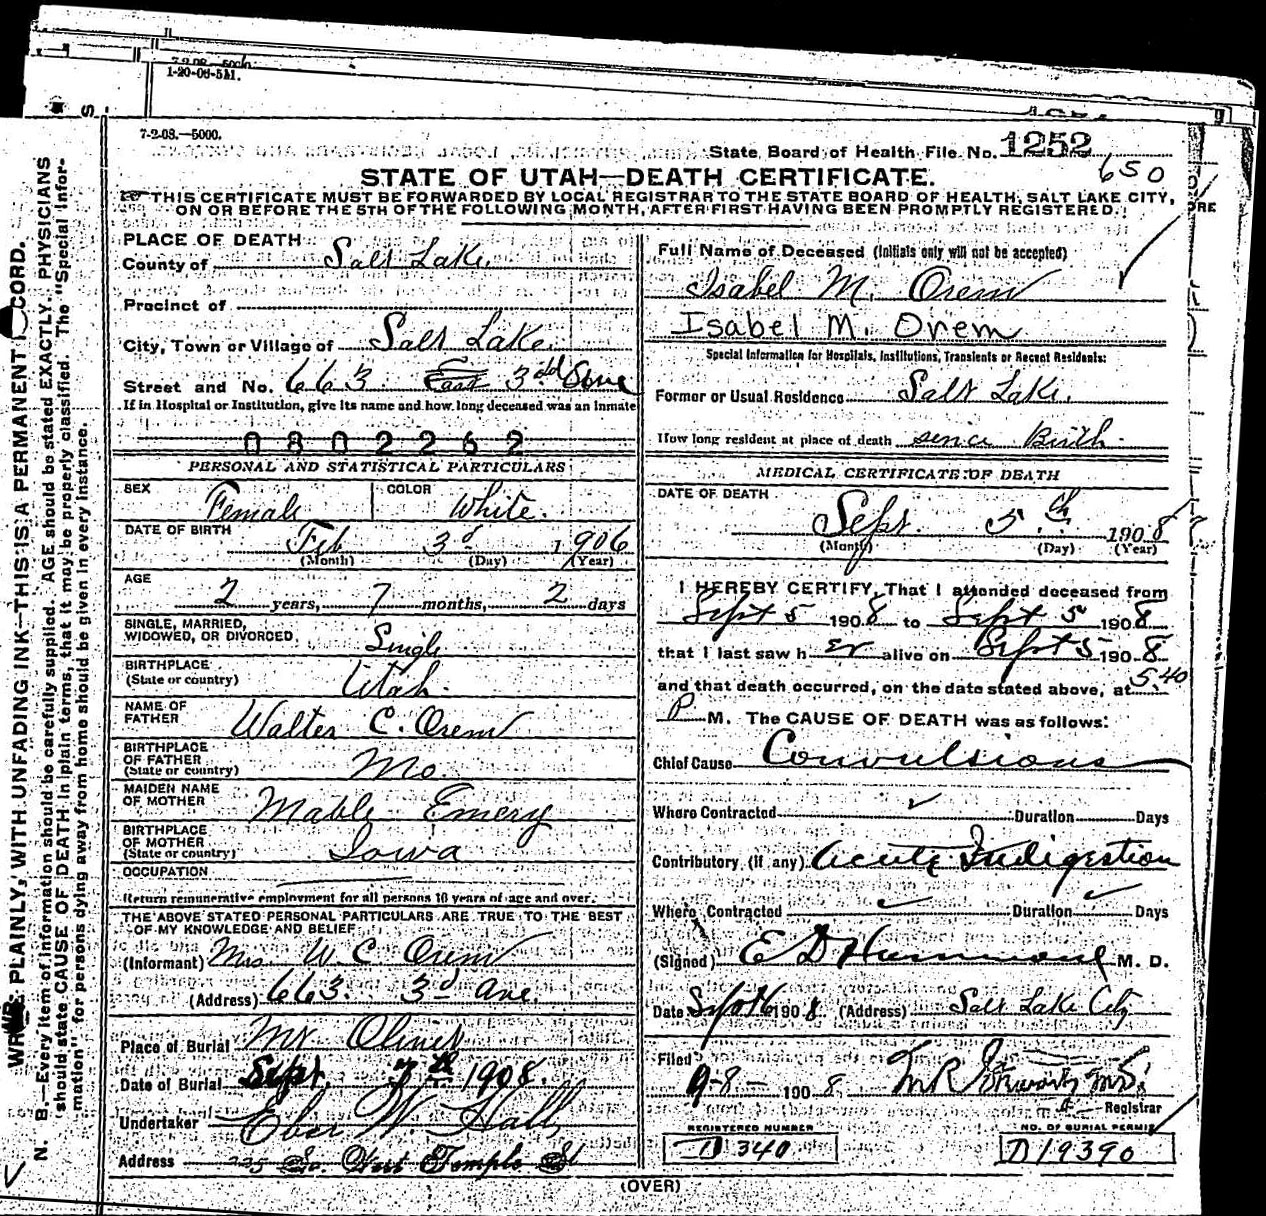 7-2-08.—5000.
1-20-06-5M.
7-2-08.—5000.
State Board of Health File No. 1252
650
STATE OF UTAH—DEATH CERTIFICATE.
THIS CERTIFICATE MUST BE FORWARDED BY LOCAL REGISTRAR TO THE STATE BOARD OF HEALTH, SALT LAKE CITY,
ON OR BEFORE THE 5TH OF THE FOLLOWING MONTH, AFTER FIRST HAVING BEEN PROMPTLY REGISTERED.
PLACE OF DEATH
County of Salt Lake.
Precinct of
City, Town or Village of Salt Lake.
Street and No. 663 East 3rd
If in Hospital or Institution, give its name and how long deceased was an inmate
0802262
PERSONAL AND STATISTICAL PARTICULARS
SEX Female COLOR White.
DATE OF BIRTH Feb 3d 1906
(Month) (Day) (Year)
AGE 2 years, 7 months, 2 days
SINGLE, MARRIED,
WIDOWED, OR DIVORCED Single
BIRTHPLACE
(State or country) Utah.
NAME OF
FATHER Walter C. Orem
BIRTHPLACE
OF FATHER
(State or country) Mo.
MAIDEN NAME
OF MOTHER Mable Emery
BIRTHPLACE
OF MOTHER
(State or country) Iowa
OCCUPATION
Return remunerative employment for all persons 10 years of age and over.
THE ABOVE STATED PERSONAL PARTICULARS ARE TRUE TO THE BEST
OF MY KNOWLEDGE AND BELIEF
(Informant) Mrs. W. C. Orem
(Address) 663. 3d Ave.
Place of Burial Mt Olivet
Date of Burial Sept. 7th 1908.
Undertaker Eber W. Hall
Address 235 So. West Temple St
Full Name of Deceased (Initials only will not be accepted)
Isabel M. Orem
Isabel M. Orem
Special Information for Hospitals, Institutions, Transients or Recent Residents:
Former or Usual Residence Salt Lake.
How long resident at place of death since Birth.
MEDICAL CERTIFICATE OF DEATH
DATE OF DEATH
Sept. 5th 1908
(Month) (Day) (Year)
I HEREBY CERTIFY, That I attended deceased from
Sept 5 1908 to Sept 5 1908
that I last saw her alive on Sept 5 1908
and that death occurred, on the date stated above, at 5.40
P M. The CAUSE OF DEATH was as follows:
Chief Cause Convulsions
Where Contracted Duration Days
Contributory (if any) Acute Indigestion
Where Contracted Duration Days
(Signed) E D Hammond M. D.
Date Sept 6 1908 (Address) Salt Lake City
Filed 9-8-1908
Registrar
REGISTERED NUMBER D 340
NO. OF BURIAL PERMIT D19390
(OVER)
WRITE PLAINLY, WITH UNFADING INK—THIS IS A PERMANENT RECORD.
N. B.—Every item of information should be carefully supplied. AGE should be stated EXACTLY. PHYSICIANS
should state CAUSE OF DEATH in plain terms, that it may be properly classified. The "Special Infor-
mation" for persons dying away from home should be given in every instance.